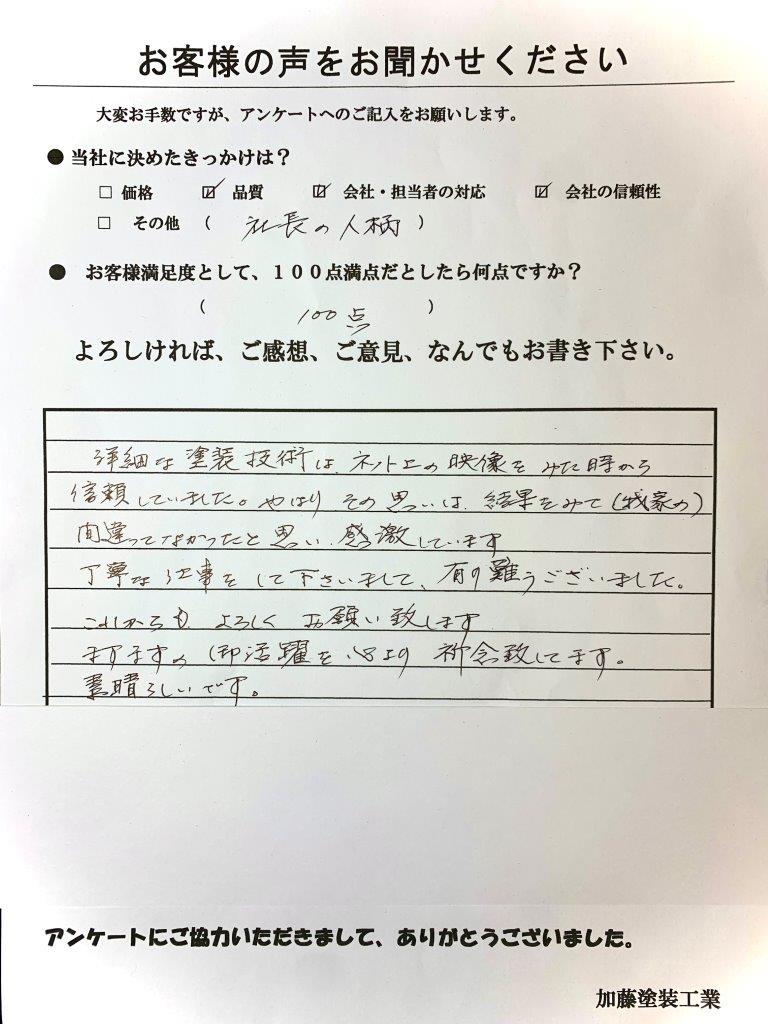 お客様の声をお聞かせください
大変お手数ですが、アンケートへのご記入をお願いします。
● 当社に決めたきっかけは？
□ 価格 ☑ 品質 ☑ 会社・担当者の対応 ☑ 会社の信頼性
□ その他 （ 社長の人柄 ）
● お客様満足度として、１００点満点だとしたら何点ですか？
（ 100点 ）
よろしければ、ご感想、ご意見、なんでもお書き下さい。
詳細な塗装技術は、ネット上の映像をみた時から
信頼していました。やはりその思いは、結果をみて(我家の)
間違ってなかったと思い、感激しています
丁寧な仕事をして下さいまして、有り難うございました。
これからも、よろしくお願い致します
ますますの御活躍を心より祈念致してます。
素晴らしいです。
アンケートにご協力いただきまして、ありがとうございました。
加藤塗装工業